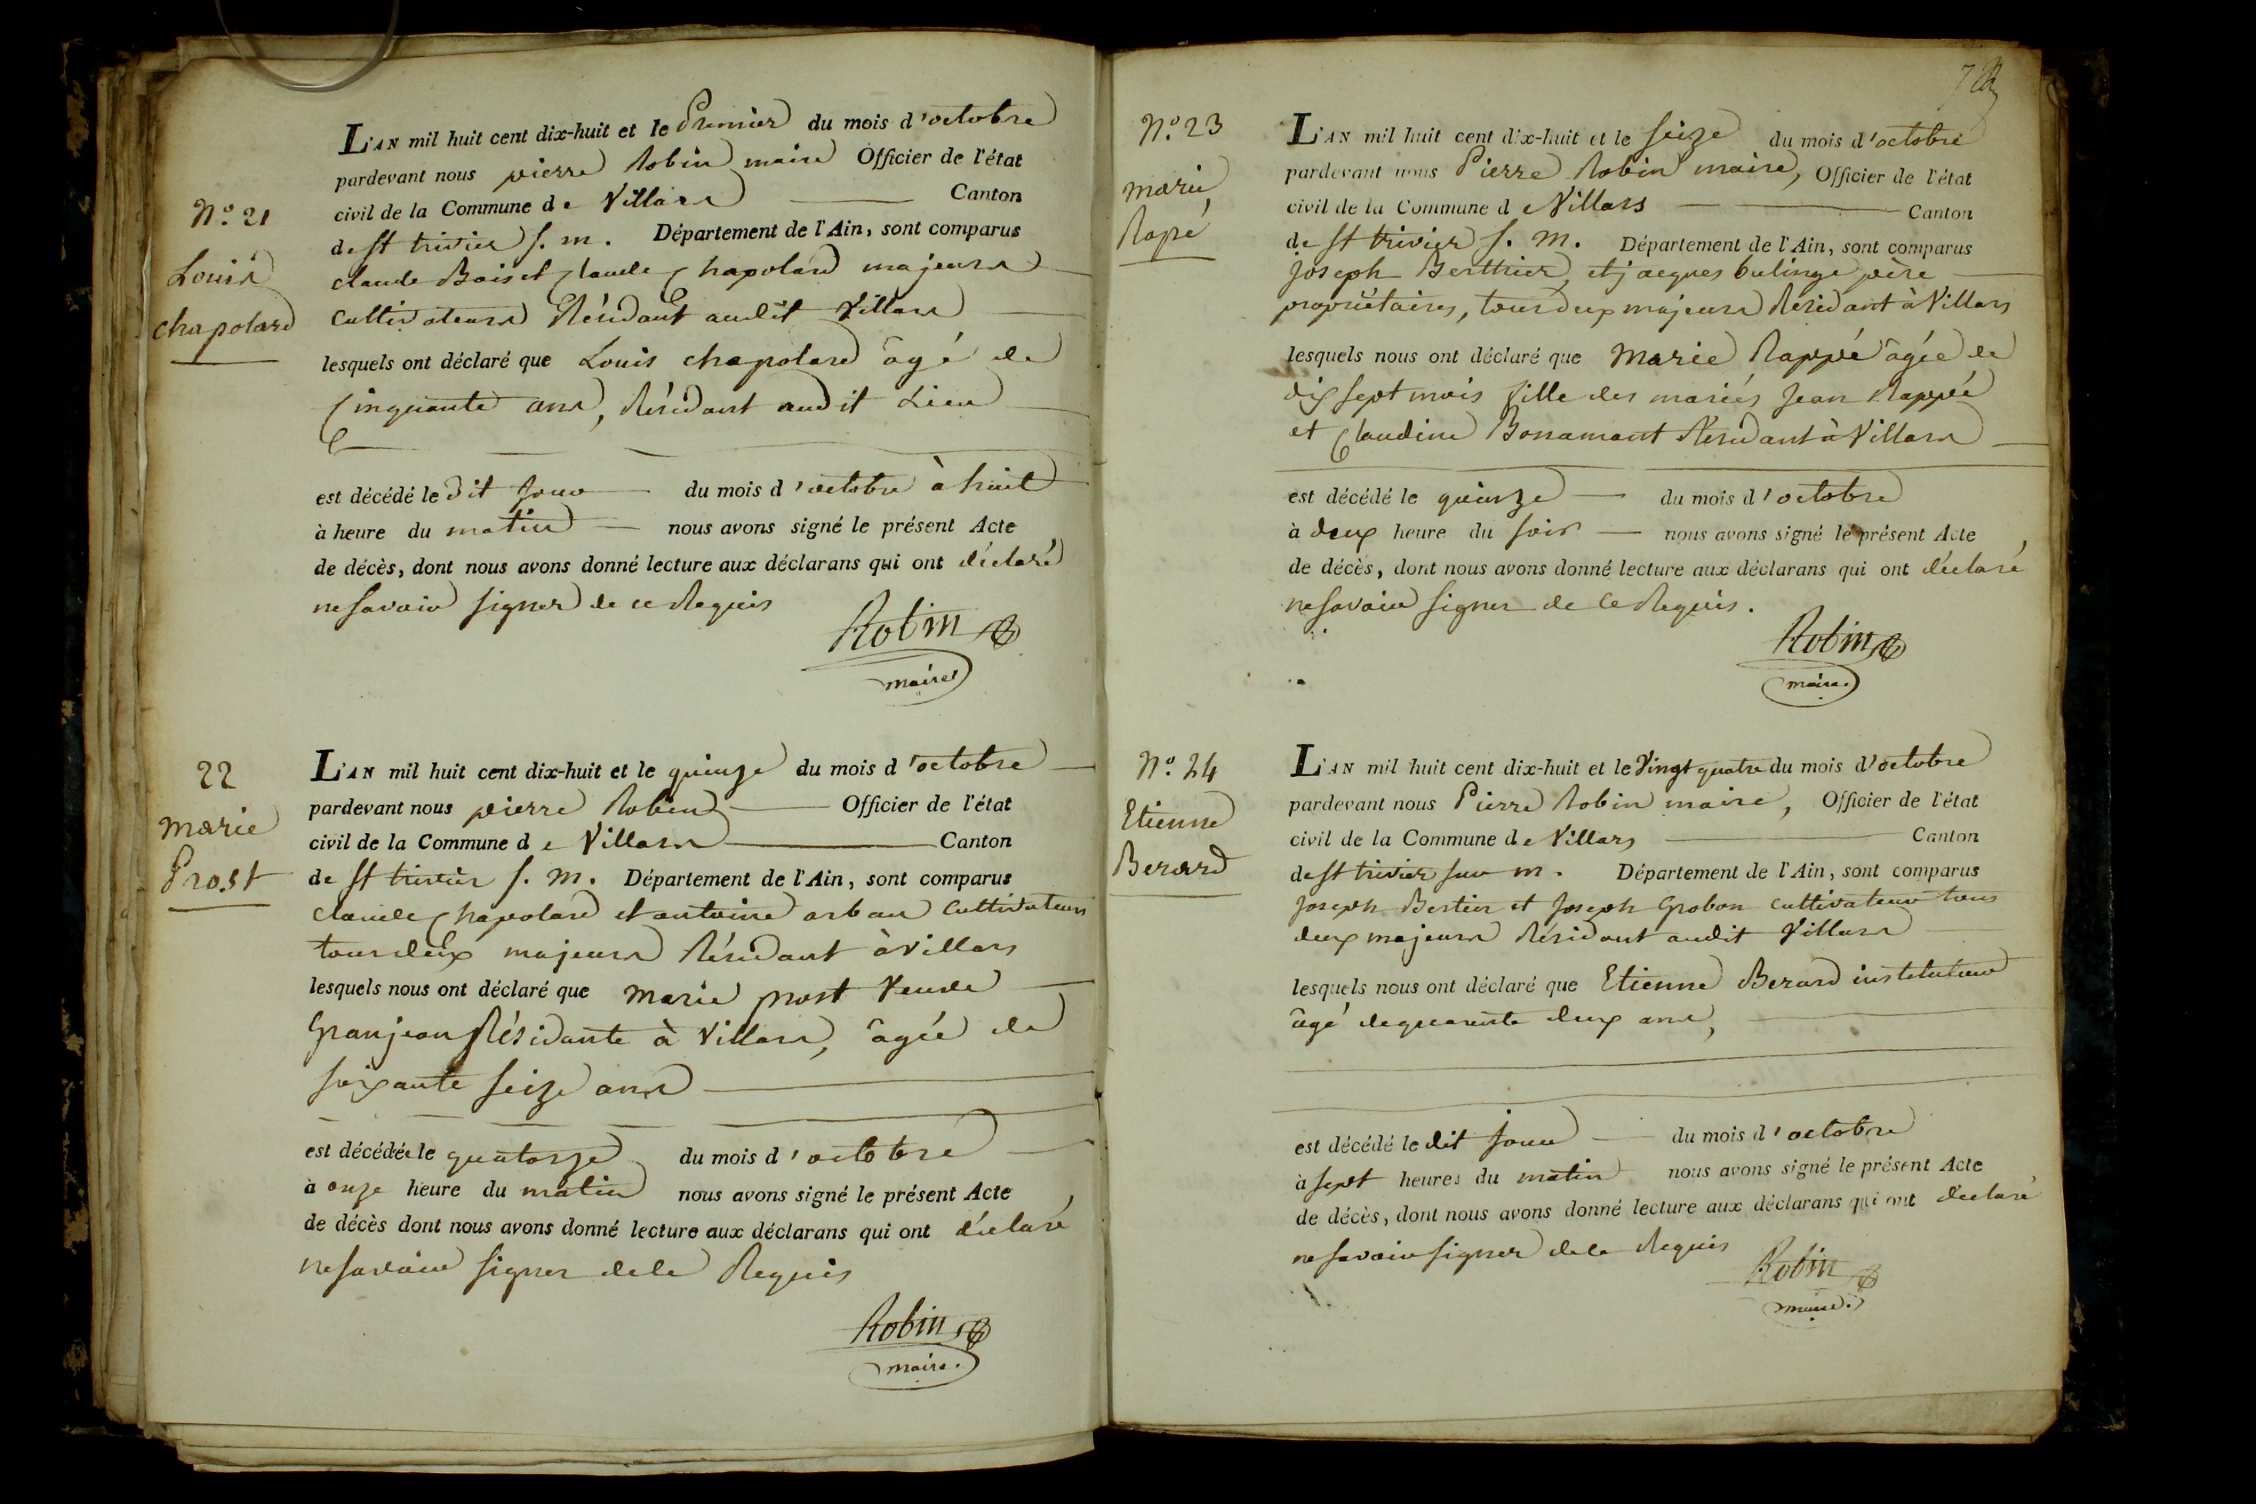 N.º 21
Louis
chapolard
L'AN mil huit cent dix-huit et le Premier du mois d'octobre
pardevant nous pierre Robin maire Officier de l'état
civil de la Commune de Villars Canton
de St trivier s. m. Département de l'Ain, sont comparus
claude Bois et Claude Chapolard majeurs
cultivateurs Résidant audit Villars
lesquels ont déclaré que Louis chapolard âgé de
Cinquante ans, Résidant audit Lieu
est décédé le dit jour du mois d'octobre à huit
à heure du matin nous avons signé le présent Acte
de décès, dont nous avons donné lecture aux déclarans qui ont déclaré
ne savoir signer de ce Requis
Robin
maire
22
marie
Prost
L'AN mil huit cent dix-huit et le quinze du mois d'octobre
pardevant nous pierre Robin Officier de l'état
civil de la Commune de Villars Canton
de St trivier s. m. Département de l'Ain, sont comparus
claude Chapolard et antoine arban Cultivateurs
tous deux majeurs Résidant à Villars
lesquels nous ont déclaré que marie prost Veuve
Granjean Résidante à Villars, âgée de
soixante seize ans
est décédée le quatorze du mois d'octobre
à onze heure du matin nous avons signé le présent Acte
de décès dont nous avons donné lecture aux déclarans qui ont déclaré
ne savoir signer de ce Requis
Robin
maire.
N.º 23
marie
Rapé
L'AN mil huit cent dix-huit et le seize du mois d'octobre
pardevant nous Pierre Robin maire, Officier de l'état
civil de la Commune de Villars Canton
de St trivier s. m. Département de l'Ain, sont comparus
Joseph Berthier, et jacques bulinge père
propriétaires, tous deux majeurs Résidant à Villars
lesquels nous ont déclaré que Marie Rappé âgée de
dix sept mois fille des mariés Jean Rappé
et Claudine Bonamant Résidant à Villars
est décédé le quinze du mois d'octobre
à deux heure du soir nous avons signé le présent Acte
de décès, dont nous avons donné lecture aux déclarans qui ont déclaré
ne savoir signer de ce Requis.
Robin
maire.
N.º 24
Etienne
Berard
L'AN mil huit cent dix-huit et le Vingt quatre du mois d'octobre
pardevant nous Pierre Robin maire, Officier de l'état
civil de la Commune de Villars Canton
de St trivier sur m. Département de l'Ain, sont comparus
Joseph Bertier et Joseph Grobon cultivateur tous
deux majeurs Résidant audit Villars
lesquels nous ont déclaré que Etienne Berard instituteur
âgé de quarente deux ans,
est décédé le dit jour du mois d'octobre
à sept heures du matin nous avons signé le présent Acte
de décès, dont nous avons donné lecture aux déclarans qui ont déclaré
ne savoir signer de ce Requis
Robin
maire.